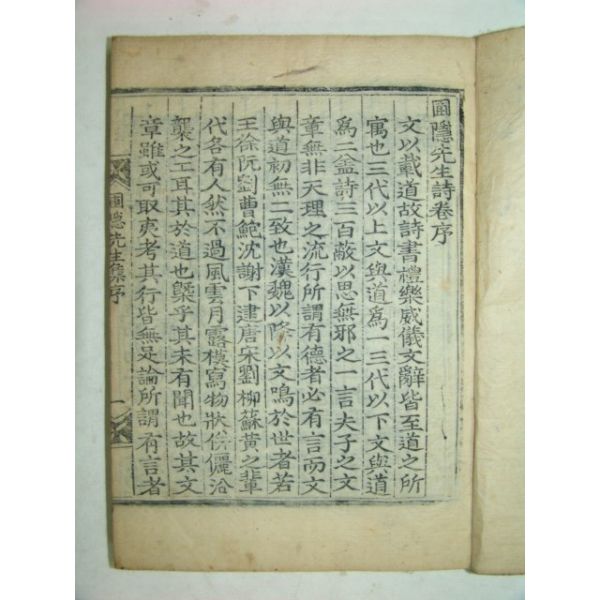 圃隱先生詩卷序
文以載道故詩書禮樂威儀文辭皆至道之所
寓也三代以上文與道爲一三代以下文與道
爲二盖詩三百蔽以思無邪之一言夫子之文
章無非天理之流行所謂有德者必有言而文
與道初無二致也漢魏以降以文鳴於世者若
王徐阮劉曹鮑沈謝下逮唐宋劉柳蘇黃之輩
代各有人然不過風雲月露模寫物狀併儷沿
襲之工耳其於道也槩乎其未有聞也故其文
章雖或可取夷考其行皆無足論所謂有言者
圃隱先生集序
一